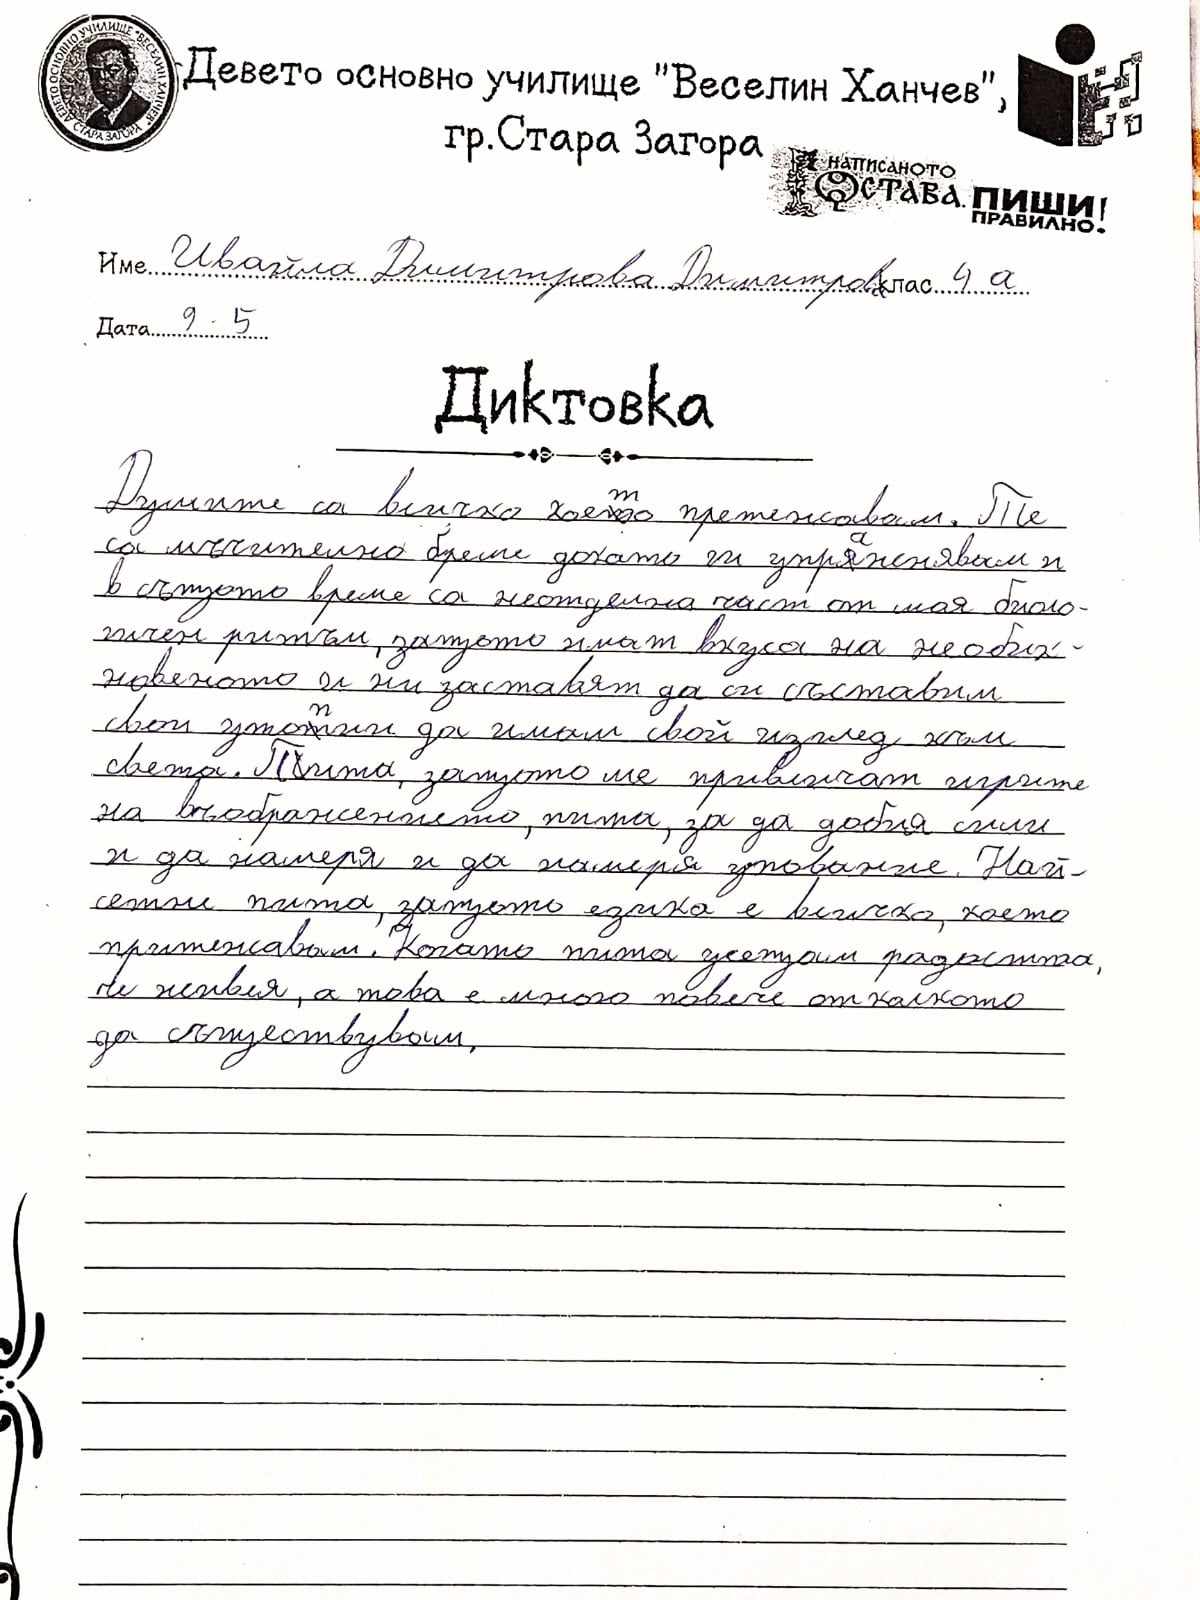 ДЕВЕТО ОСНОВНО УЧИЛИЩЕ "ВЕСЕЛИН ХАНЧЕВ"
СТАРА ЗАГОРА
Девето основно училище "Веселин Ханчев",
гр.Стара Загора
НАПИСАНОТО
ОСТАВА. ПИШИ
ПРАВИЛНО!
Име Ивайла Димитрова Димитрова клас 4 а
Дата 9.5
Диктовка
Думите са всичко което претежавам. Те
са мъчително бреме докато ги упражнявам и
в същото време са неотделна част от мая биоло-
гичен ритъм, защото имат вкуса на необик-
новеното и ни заставят да си съставим
свои утопии да имам свой изглед към
света. Пита, защото ме привличат игрите
на въображението, пита, за да добия сили
и да намеря и да намеря упование. Най-
сетни пита, защото езика е всичко, което
притежавам. Когато пита усещам радостта,
че живея, а това е много повече от колкото
да съществувам,